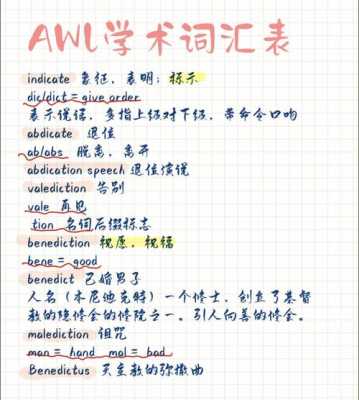 AWL学术词汇表
indicate 象征，表明；标示
dic/dict = give order
表示说话，多指上级对下级，带命令口吻
abdicate 退位
ab/abs 脱离，离开
abdication speech 退位演说
valediction 告别
vale 再见
tion 名词后缀标志
benediction 祝愿，祝福
bene = good
benedict 已婚男子
人名（本尼迪克特）一个修士，创立了基督
教的隐修会的修院之一。引人向善的修会。
malediction 诅咒
man = hand mal = bad
Benedictus 天主教的弥撒曲